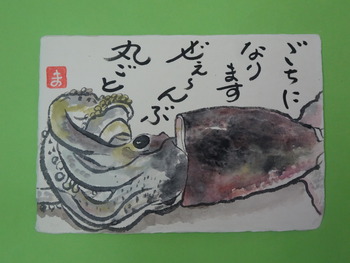 ごちに
なります
ぜぇ〜んぶ
丸ごと
ま